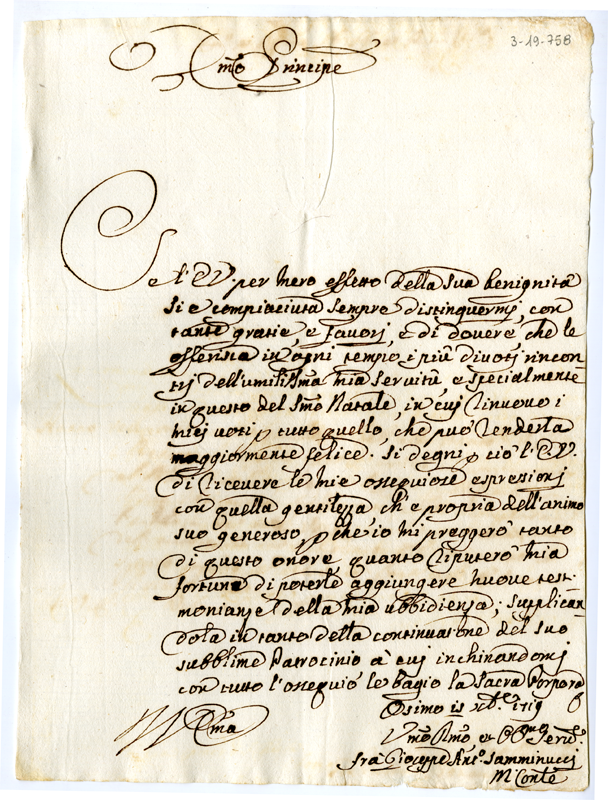 3-19-758
Emo Principe
Se l'E.V. per mero effetto della sua benignità
si è compiaciuta sempre distinguermj, con
tante gratie, e favorj, è di dovere che le
offerisca in ogni tempo i più divoti rincon
trj dell'umilissima mia servitù, e specialmente
in questo del Smo Natale, in cuj rinuovo i
miej voti p tutto quello, che può renderla
maggiormente felice. Si degni p ciò l'E.V.
di ricevere le mie ossequiose espresionj
con quella gentilezza ch'è propria dell'animo
suo generoso, p che io mi preggerò tanto
di questo onore, quanto riputerò mia
fortuna di poterle aggiungere nuove test:
monianze della mia ubbidienza; supplican
dola in tanto della continuatione del suo
subblime Patrocinio à cuj inchinandomj
con tutto l'ossequio le bagio la Sacra Porpora
Osimo is xbre 1719
Vmo Dmo et Obmo Servo
fra Gioseppe Anto Samminucij
M Conte